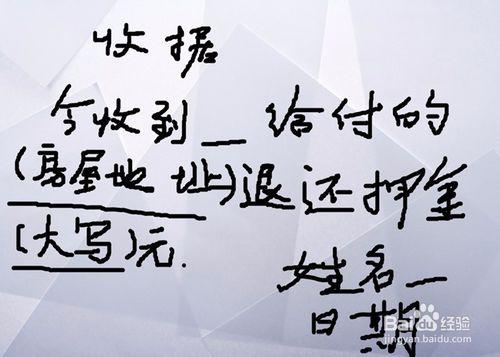 收据
今收到_给付的
(房屋地址)退还押金
(大写)元.
姓名_
日期
Baidu经验
jingyan.baidu.com